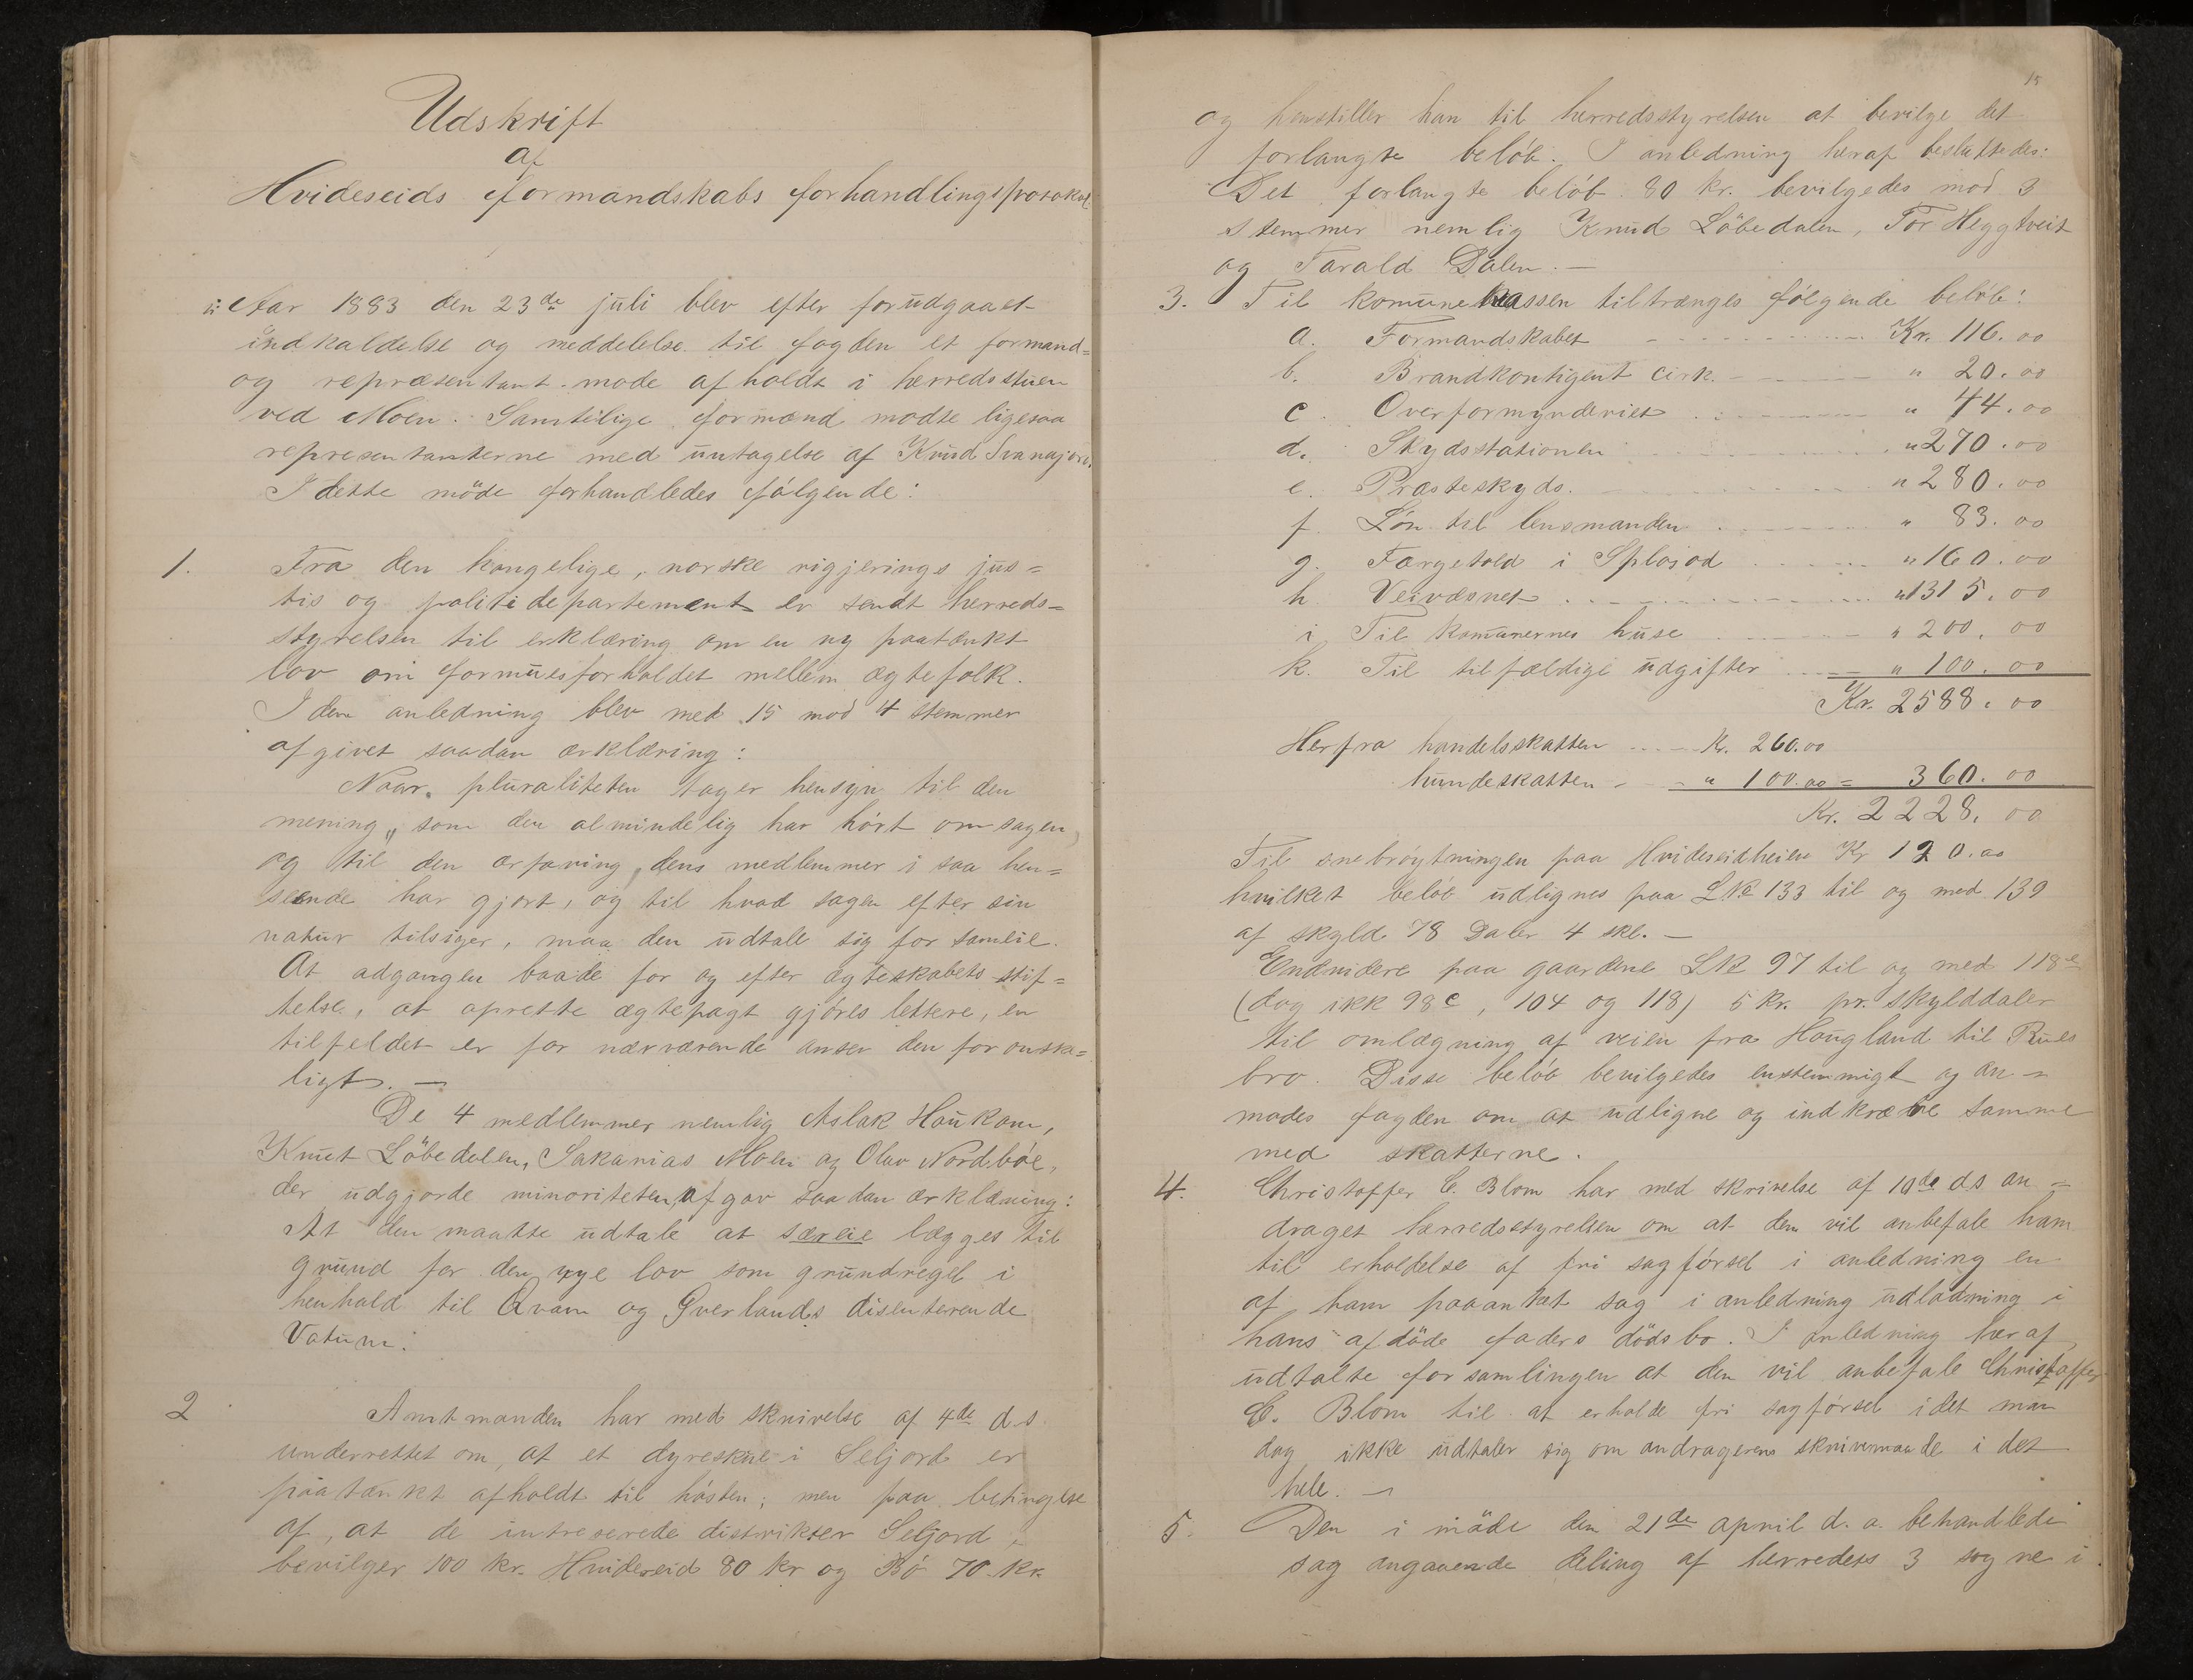 Udskrift
af
Hvideseids formandskabs forhandlingsprotokol
Aar 1883 den 23de juli blev efter forudgaaet
indkaldelse og meddelelse til fogden et formand=
og repræsentant-møde afholdt i herredsstuen
ved Moen. Samtilige formænd mødte ligesaa
representanterne med untagelse af Knud
I dette möde forhandledes følgende:
1. Fra den kongelige, norske rigjerings jus=
tis og politidepartement er sendt herreds=
styrelsen til erklæring om en ny paatænkt
lov om formuesforholdet mellem ægtefolk.
I den anledning blev med 15 mod 4 stemmer
afgivet saadan ærklæring:
Naar pluraliteten tager hensyn til den
mening, som den almindelig har hørt om sagen,
og til den ærfaring, dens medlemmer i saa hen=
seende har gjort, og til hvad sagen efter sin
natur tilsiger, maa den udtale sig for sameie.
At adgangen baade for og efter ægteskabets stif=
telse, at oprette ægtepagt gjøres lettere, en
tilfeldet er for nærværende anser den for ønske=
ligt. —
De 4 medlemmer nemlig Aslak Haukom,
Knut Löbedalen, Sakarias Moen og Olav Nordbøe,
der udgjorde minoriteten, afgav saadan ærklæring:
At den maatte udtale at særeie lægges til
grund for den nye lov som grundregel i
henhold til Qvam og Gverlands disenterende
Votum.
2 Amtmanden har med skrivelse af 4de d.s
underrettet om, at et dyreskue i Seljord er
paatænkt afholdt til høsten; men paa betingelse
af, at de intreserede distrikter Seljord,
bevilger 100 kr. Hvideseid 80 kr og Bø 70 kr.
15
og henstiller han til herredsstyrelsen at bevilge det
forlangte beløb. I anledning heraf besluttedes:
Det forlangte beløb 80 kr. bevilgedes mod 3
stemmer nemlig Knud Löbedalen, Tor Heggtveit
og Tarald Dalen. —
3. Til komunekassen tiltrænges følgende beløb:
a. Formandskabet Kr. 116.00
b. Brandkontigent cirk. " 20.00
c. Overformynderiet " 44.00
d. Skydsstationen " 270.00
e. Præsteskyds. " 280.00
f. Løn til lensmanden " 83.00
g. Færgetold i " 160.00
h. Veivæsnet " 1315.00
i Til komunernes huse " 200.00
k. Til tilfældige udgifter " 100.00
Kr. 2588.00
Herfra handelsskatten Kr. 260.00
hundeskatten " 100.00 = 360.00
Kr. 2228.00
Til snebrøytningen paa Hvideseidheien Kr 120.00
hvilket beløb udlignes paa LNo 133 til og med 139
af skyld 78 Daler 4 skl. —
Endvidere paa gaardene LN 97 til og med 118
(dog ikk 98c, 104 og 118) 5 kr. pr. skylddaler
til omlægning af veien fra Haugland til Rues
bro. Disse beløb bevilgedes enstemmigt og an=
modes fogden om at udligne og indkræve samme
med skatterne.
4. Christoffer C. Blom har med skrivelse af 10de ds an=
draget herredsstyrelsen om at den vil anbefale ham
til erholdelse af fri sagførsel i anledning en
af ham paaanket sag i anledning udlodning i
hans afdöde faders dödsbo. I anledning heraf
udtalte forsamlingen at den vil anbefale Christoffer
C. Blom til at erholde fri sagførsel idet man
dog ikke udtaler sig om andragerens skrivemaade i det
hele. —
5. Den i möde den 21de april d.a. behandlede
sag angaaende deling af herredets 3 sogne i